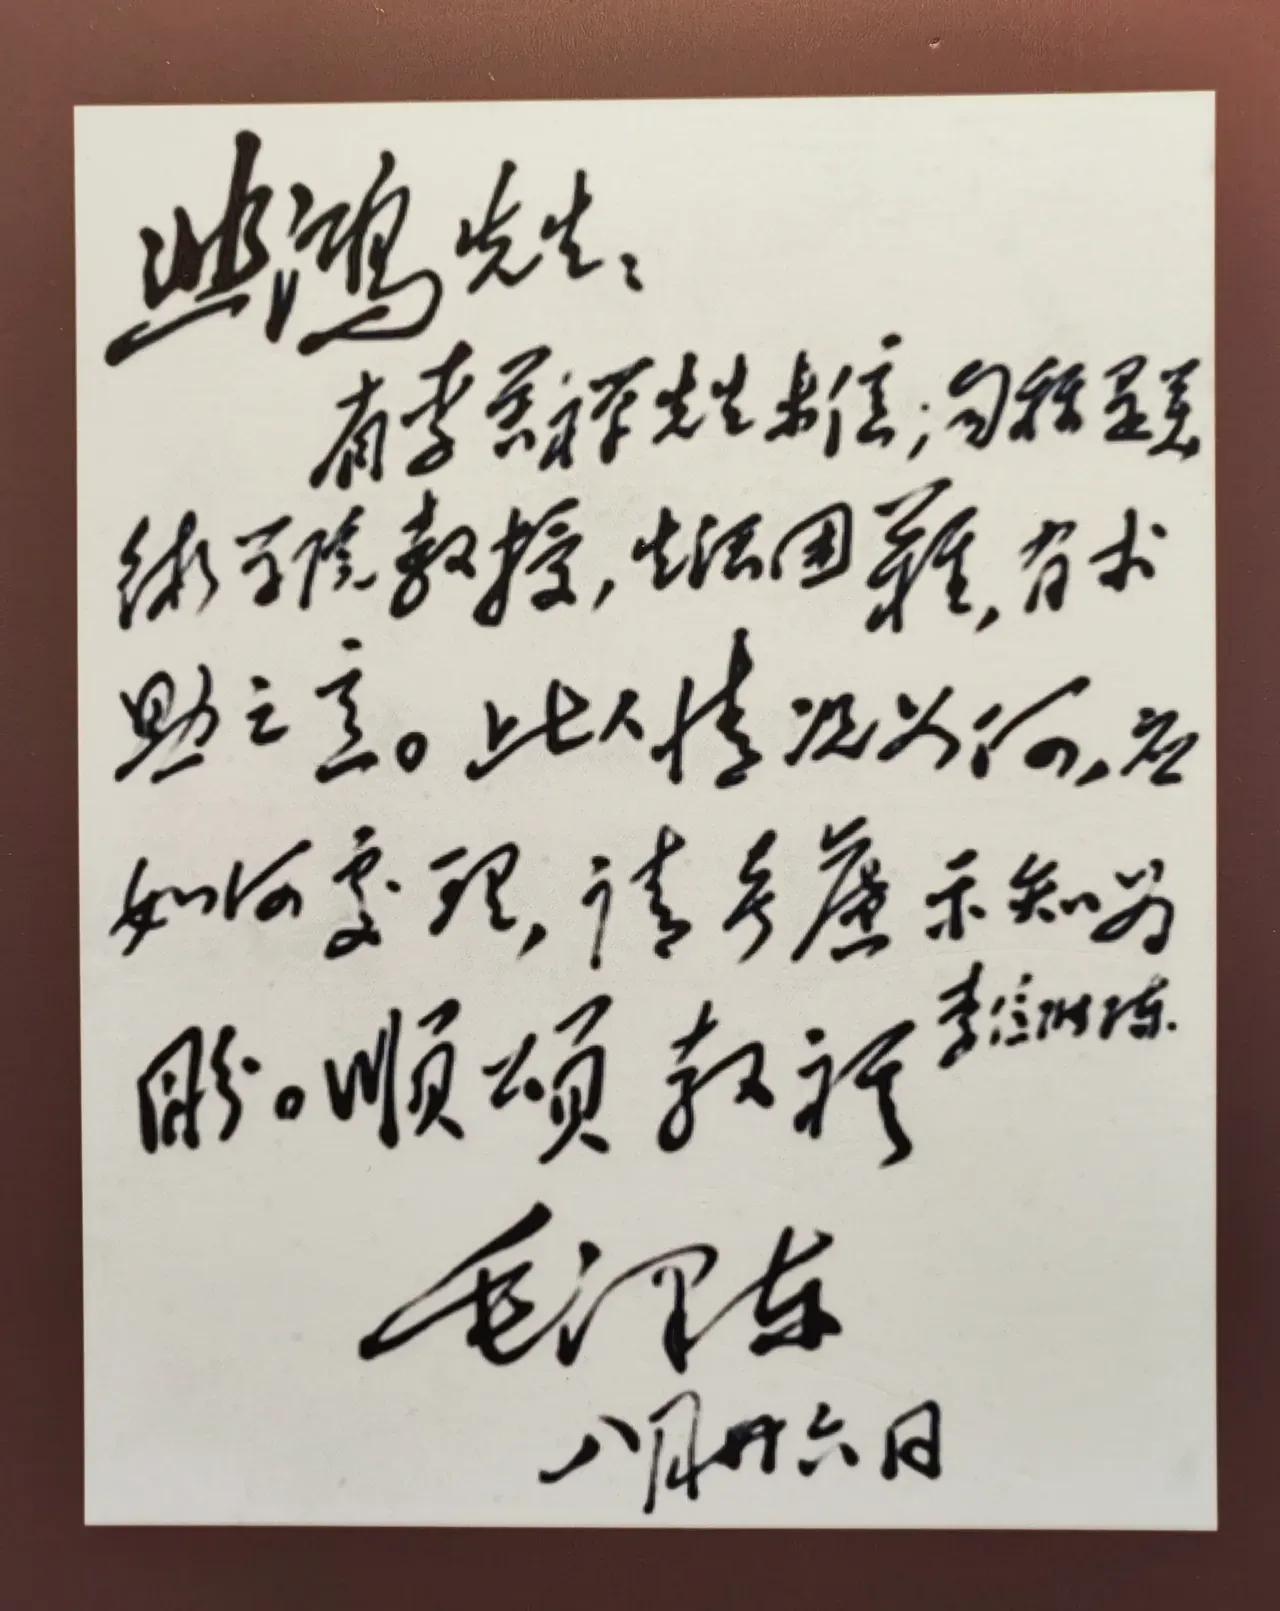 悲鸿先生：
有李苦禅先生来信，自称是美
术学院教授，生活困难，有求
助之意。此人情况如何，应
如何处理，请考虑示知为
盼。顺颂教祺
李信附陈.
毛泽东
八月廿六日